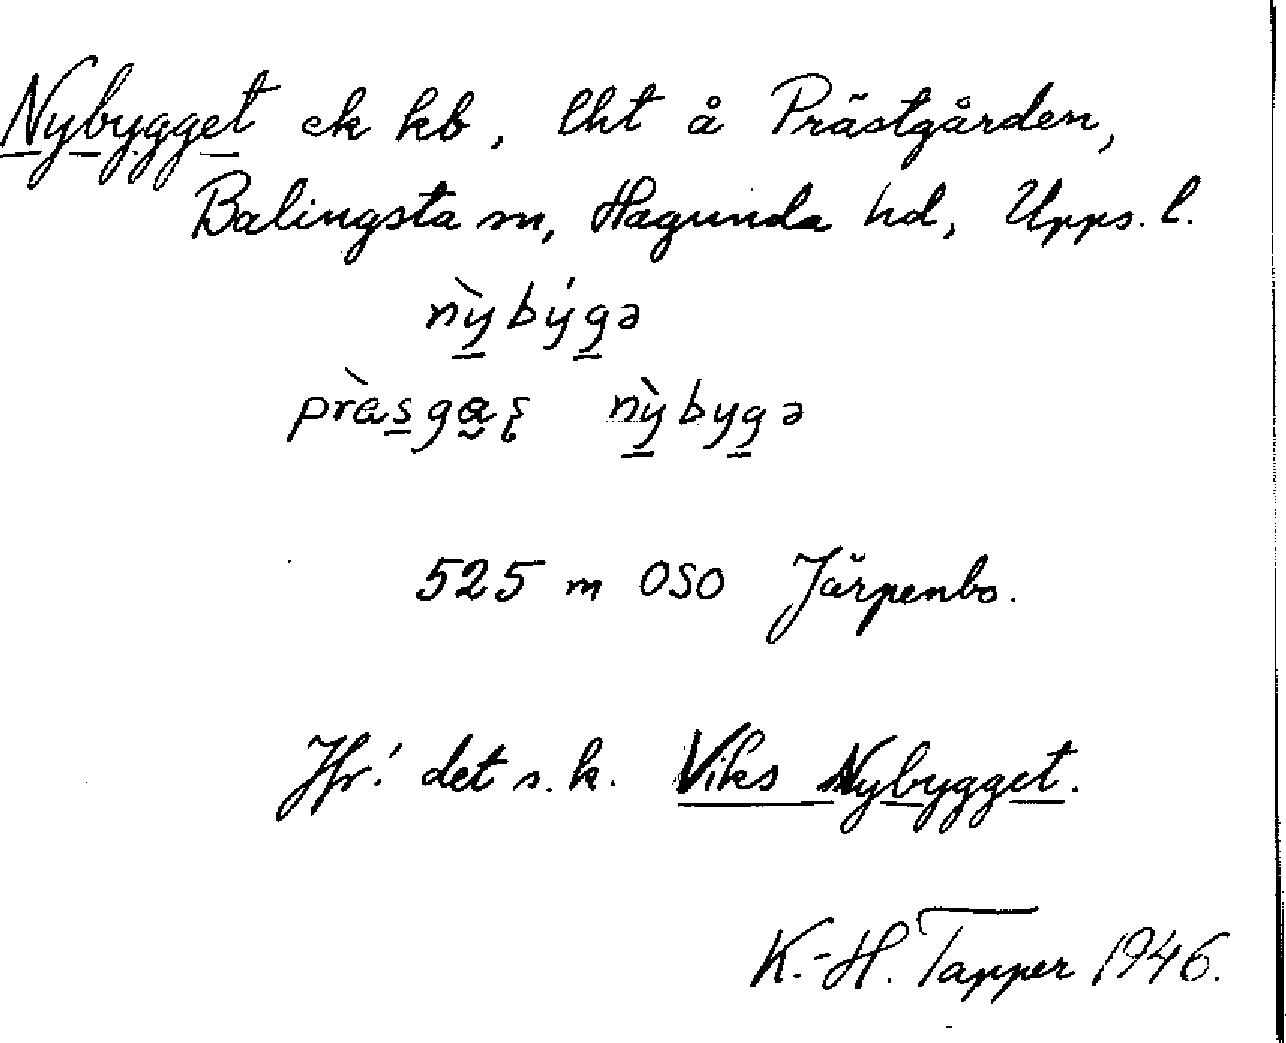 Nybygget ek kb, lht å Prästgården,
Balingsta sn, Hagunda hd, Upps. l.
nỳbýgə
nỳbygə
525 m OSO Järpenbo.
Jfr! det s.k. Viks Nybygget.
K.-H. Tapper 1946.